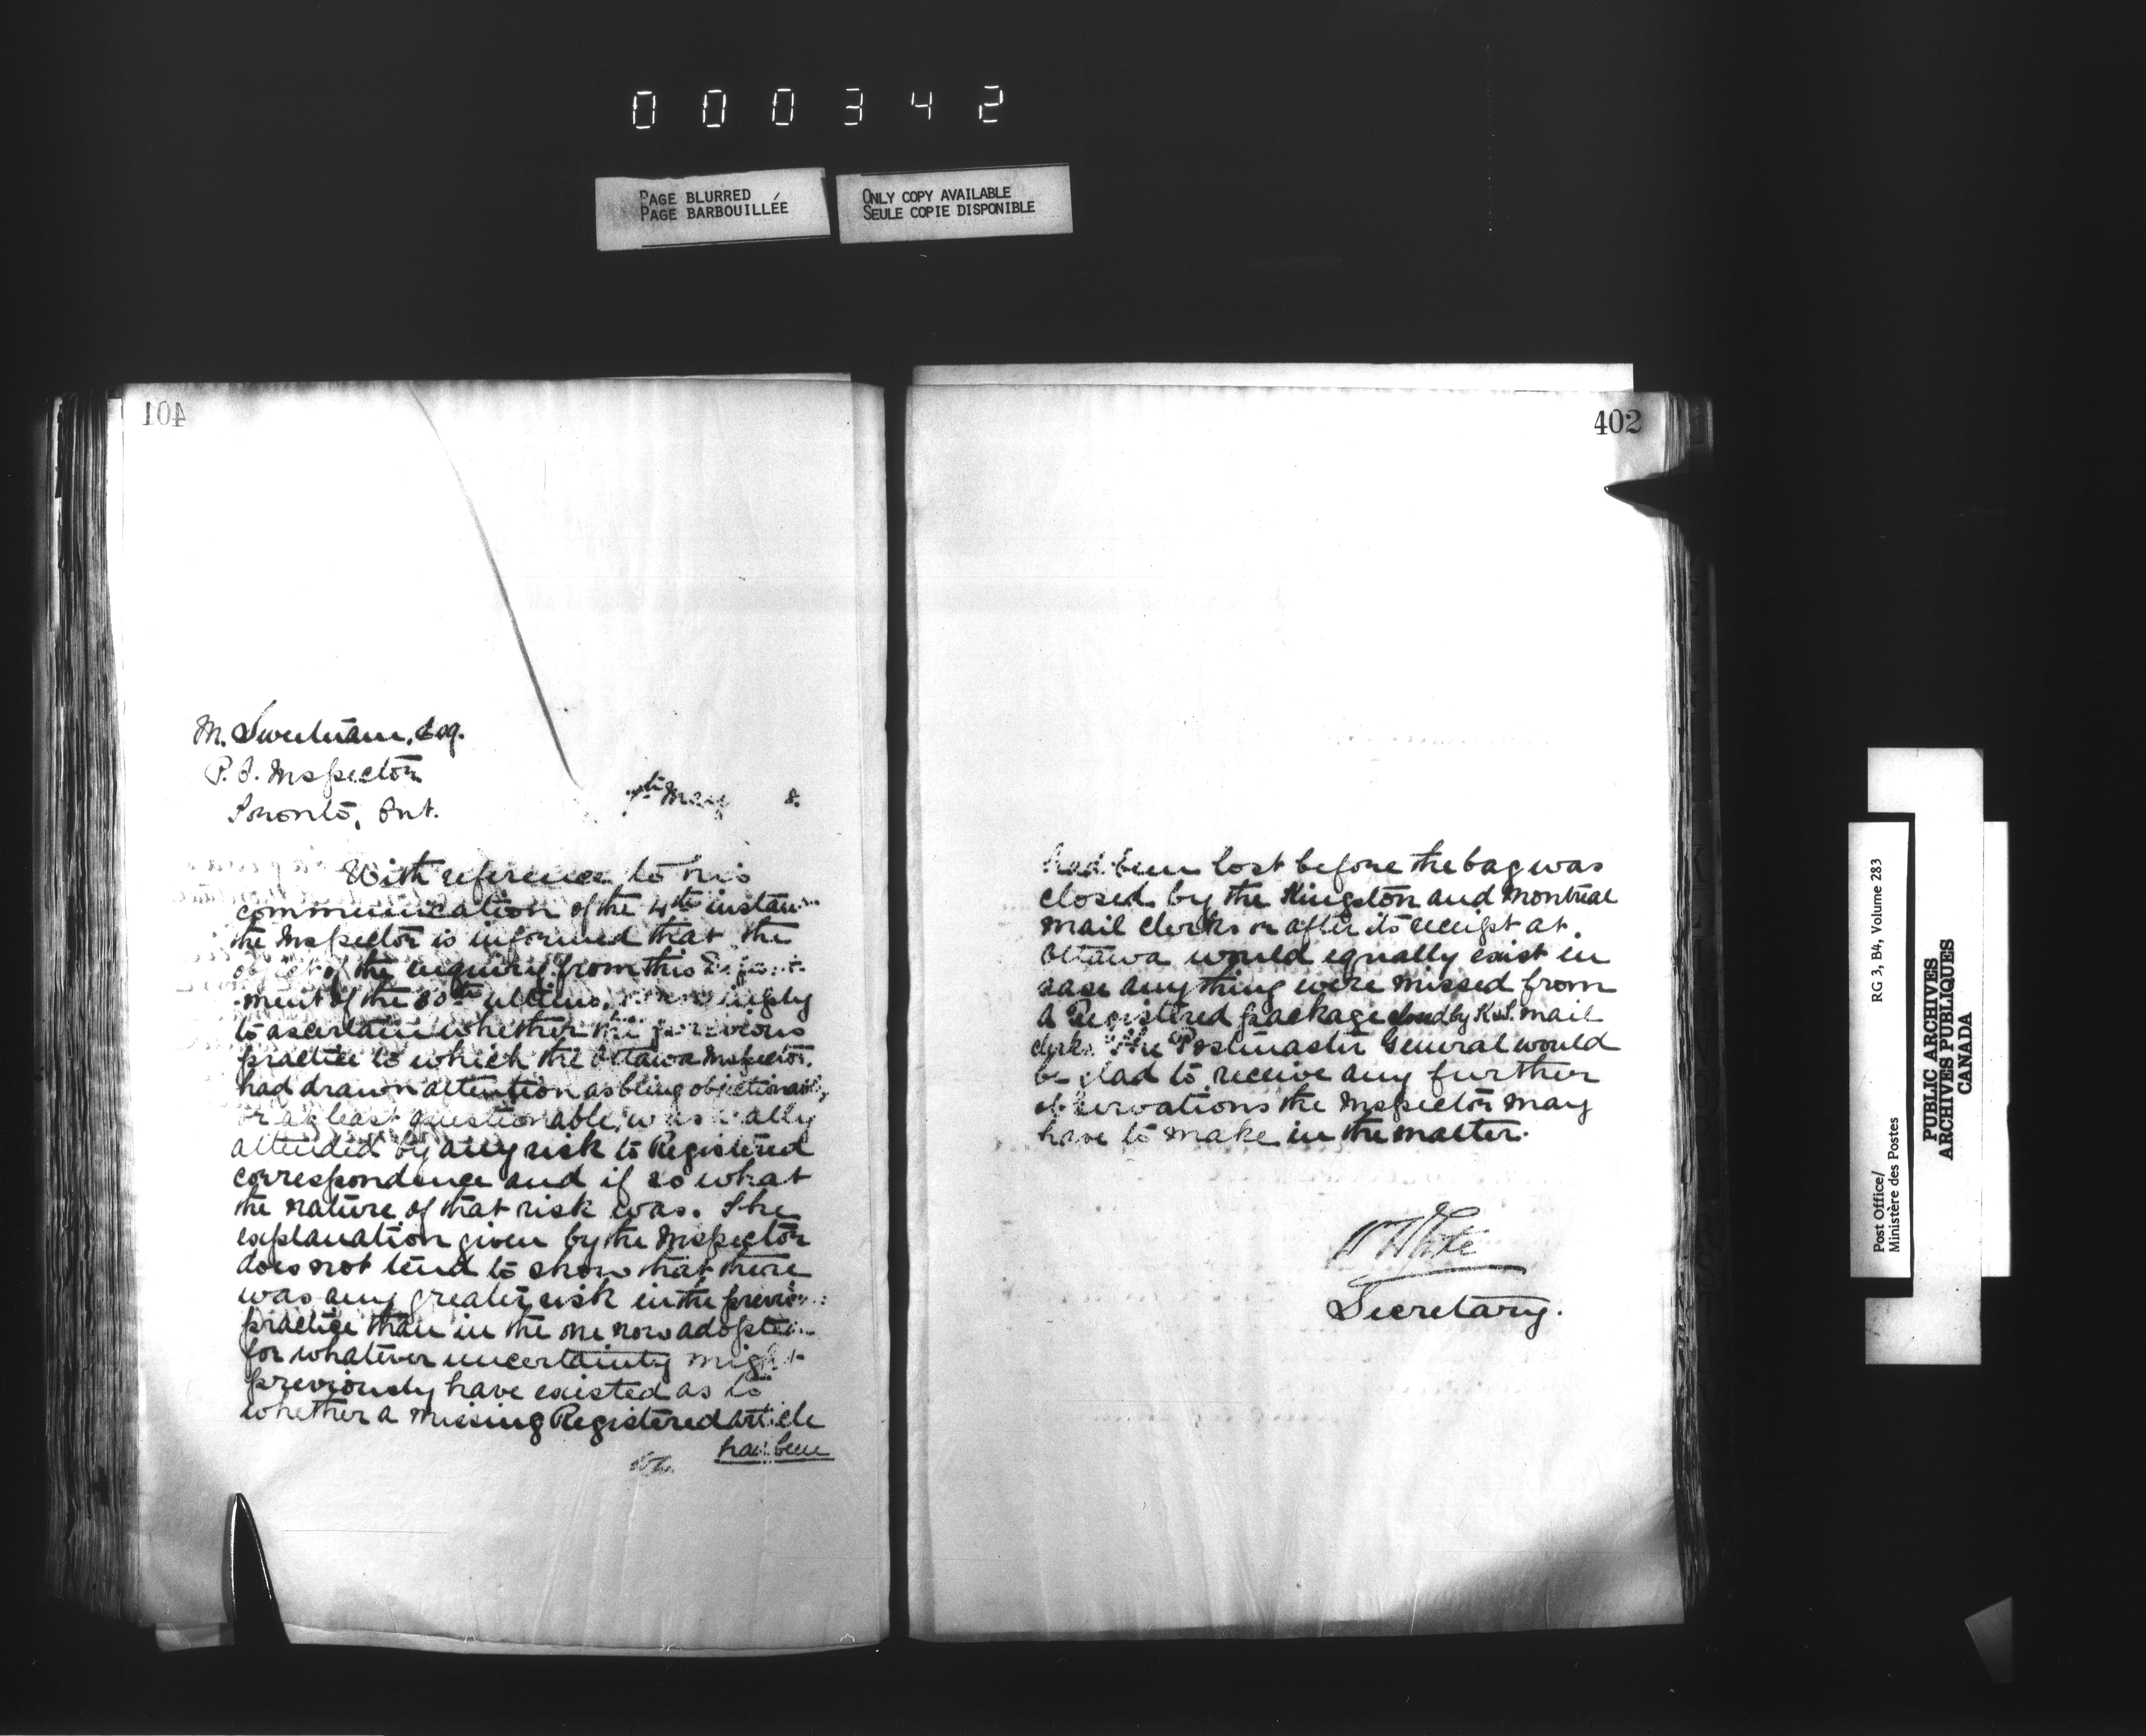 000342
PAGE BLURRED
PAGE BARBOUILLÉE
ONLY COPY AVAILABLE
SEULE COPIE DISPONIBLE
401
M. Sweetnam, Esq.
P.O. Inspector
Toronto, Ont.
May 8.
With reference to his
communication of the 4th instan
the Inspector is informed that the
object of the inquiry from this Depart-
ment of the 30th ultimo, was simply
to ascertain whether the previous
practice to which the Ottawa Inspector
had drawn attention as being objectionable,
or at least questionable, was really
attended by any risk to Registered
correspondence and if so what
the nature of that risk was. The
explanation given by the Inspector
does not tend to show that there
was any greater risk in the previous
practice than in the one now adopted
for whatever uncertainty might
previously have existed as to
whether a missing Registered article
had been
402
had been lost before the bag was
closed by the Kingston and Montreal
mail clerks or after its receipt at
Ottawa would equally exist in
case anything were missed from
a Registered package closed by K & M mail
clerks. The Postmaster General would
be glad to receive any further
observations the Inspector may
have to make in the matter.
W White
Secretary.
Post Office/ RG 3, B4, Volume 283
Ministère des Postes
PUBLIC ARCHIVES
ARCHIVES PUBLIQUES
CANADA